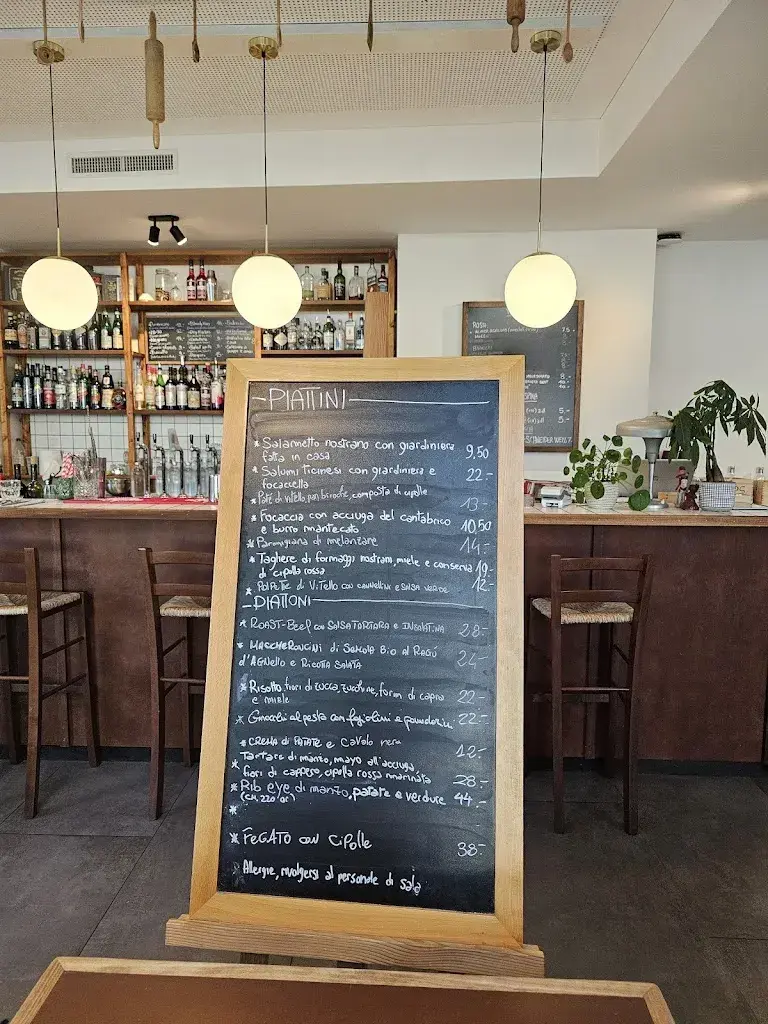 -PIATTINI
* Salametto nostrano con giardiniera 9,50
fatta in casa
* Salumi ticinesi con giardiniera e 22.-
focaccella
* Patè di vitello, pan brioche, composta di cipolle 13.-
* Focaccia con acciuga del cantabrico 10,50
e burro mantecato
* Parmigiana di melanzane 14.-
* Tagliere di formaggi nostrani, miele e conserva 19.-
di cipolla rossa
* POLPETTE di Vitello con cannellini e SALSA VERDE 12.-
-PIATTONI
* ROAST-BEEF con SALSA TARTARA e INSALATINA 28.-
* MACCHERONCINI di Semola Bio al Ragù 24.-
d'AGNello e Ricotta Salata
* Risotto, fiori di zucca, zucchine, form. di capra 22.-
e miele
* Gnocchi al pesto con fagiolini e pomodorini 22.-
* CREMA di PATATE e CAVOLO nero 12.-
* Tartare di manzo, mayo all'acciuga,
fiori di cappero, cipolla rossa marinata 28.-
* Rib eye di manzo, patate e verdure 44.-
(CH, 220 gr)
*
* FEGATO con CiPolle 38.-
Allergie, rivolgersi al personale di sala
ROSSI
75.-
8.-
5.-
5.-